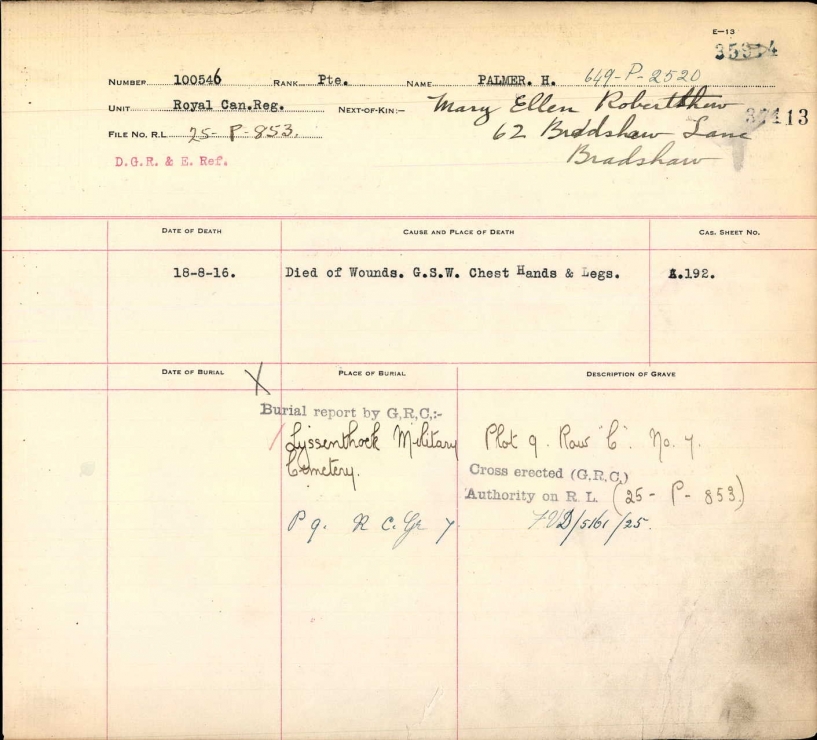 E-13
NUMBER 100546 RANK Pte. NAME PALMER. H. 649-P-2520
UNIT Royal Can.Reg. NEXT-OF-KIN:- Mary Ellen Robertshaw
FILE NO. R.L. 25-P-853. 62 Bradshaw Lane
D.G.R. & E. Ref. Bradshaw
DATE OF DEATH CAUSE AND PLACE OF DEATH CAS. SHEET NO.
18-8-16. Died of Wounds. G.S.W. Chest Hands & Legs. A.192.
DATE OF BURIAL X PLACE OF BURIAL DESCRIPTION OF GRAVE
Burial report by G,R,C,:-
Lyssenthock Military Plot 9. Row "C". No. 7.
Cemetery. Cross erected (G,R,C,)
Authority on R. L. (25 - P - 853.)
P 9. R C. Gr 7